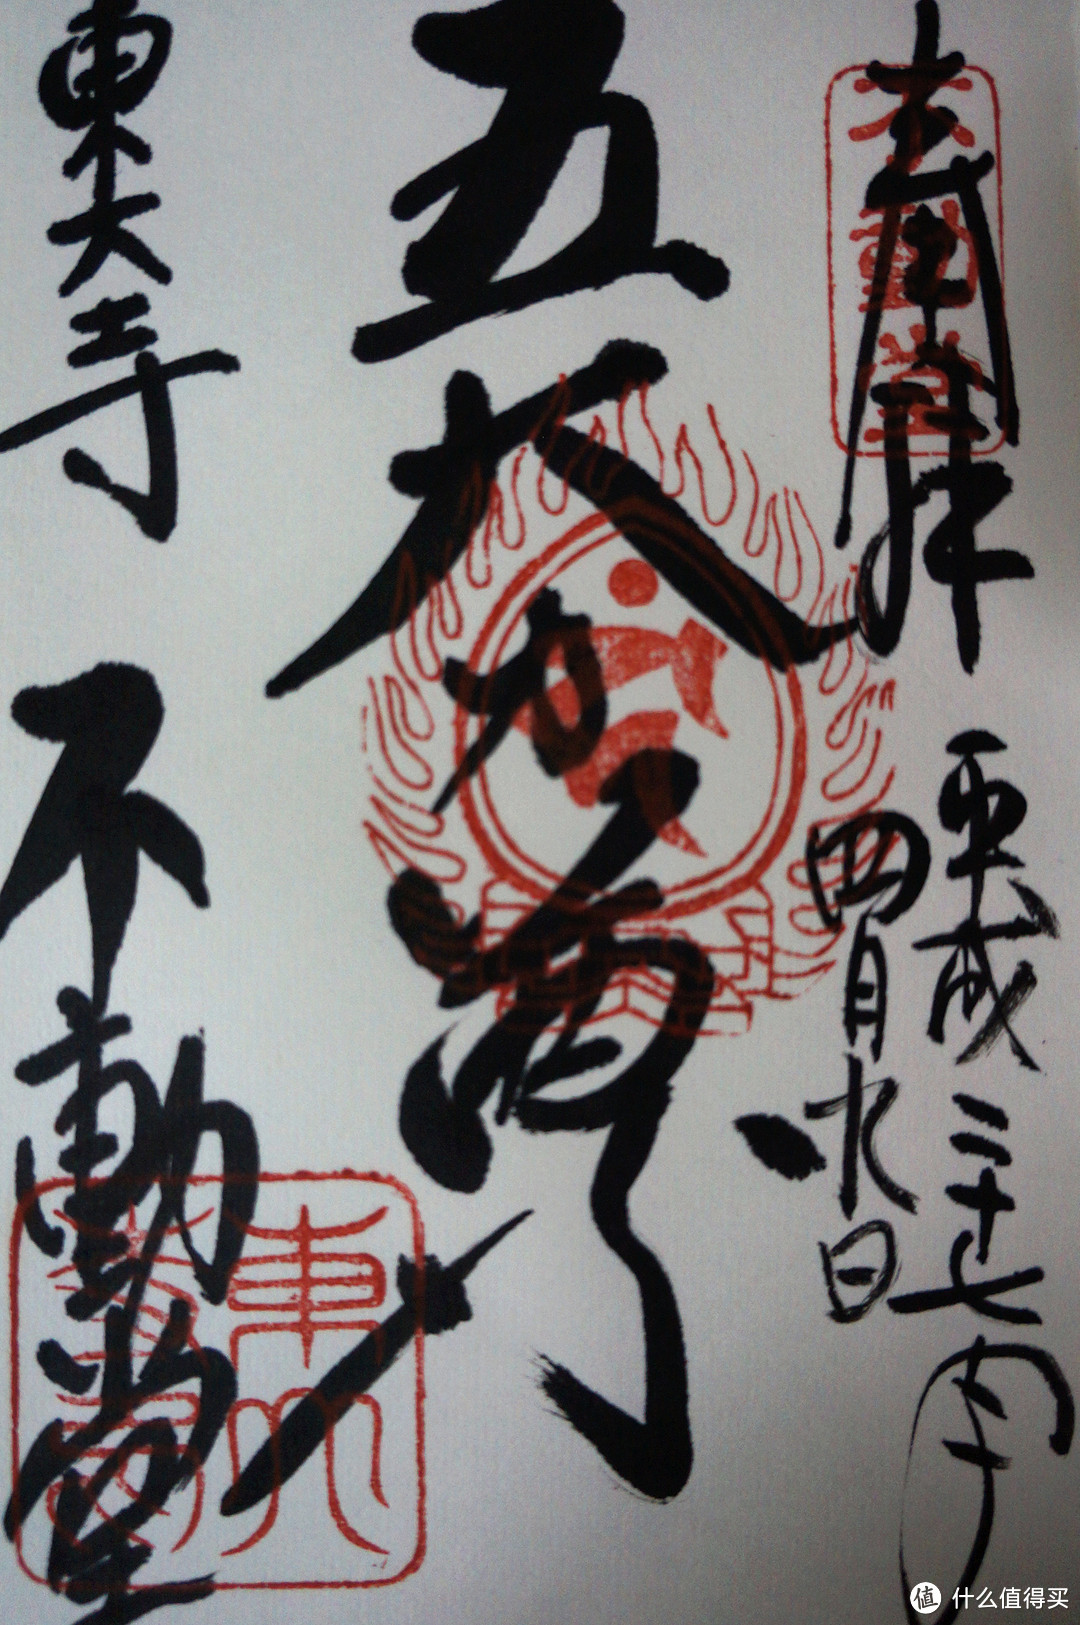 奉拝
不動堂
平成二十七年
四月九日
五大力尊
東大寺
不動堂
東大
值 什么值得买